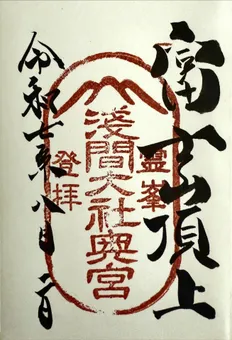 富士山頂上
霊峯
浅間大社奥宮
登拝
令和七年八月二日